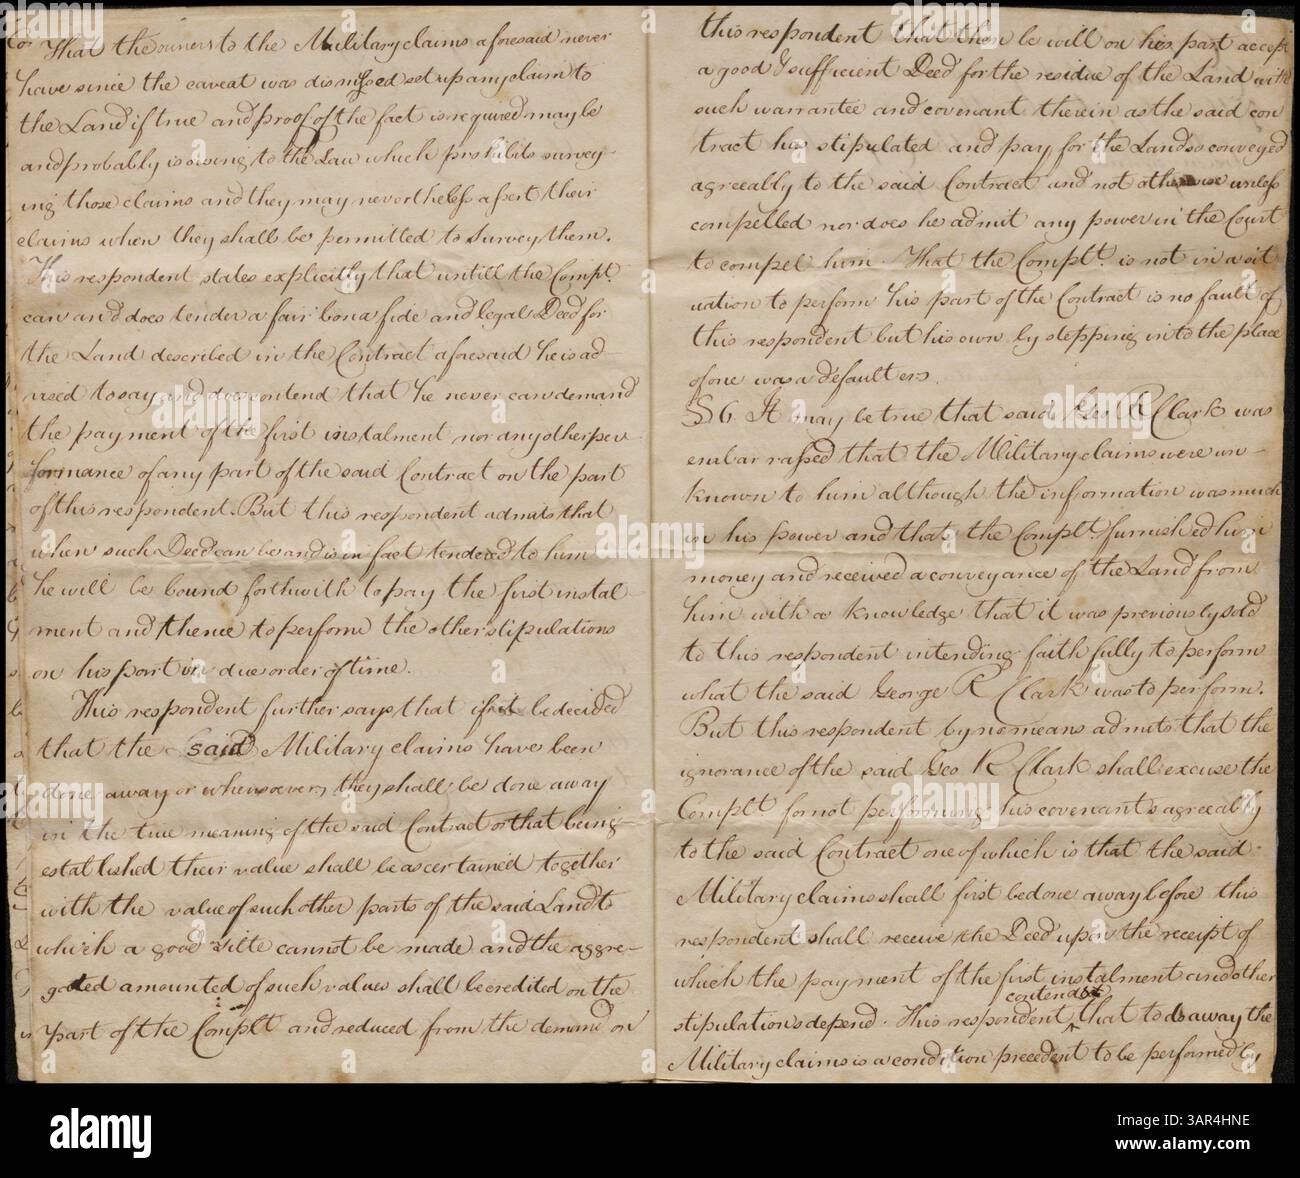 That the owners to the Military claims aforesaid never
have since the caveat was dismissed set up any claim to
the Land if true and proof of the fact is required may be
and probably is owing to the Law which prohibits survey-
ing those claims and they may nevertheless assert their
claims when they shall be permitted to Survey them.
This respondent states explicitly that untill the Complt.
can and does tender a fair bona fide and legal Deed for
the Land described in the Contract aforesaid he is ad-
vised to say and does contend that he never can demand
the payment of the first instalment nor any other per-
formance of any part of the said Contract on the part
of this respondent. But this respondent admits that
when such Deed can be and is in fact tendered to him
he will be bound forthwith to pay the first instal-
ment and thence to perform the other stipulations
on his part in due order of time.
This respondent further says that if it be decided
that the said Military claims have been
done away or whensoever they shall be done away
in the true meaning of the said Contract or that being
established their value shall be ascertained together
with the value of such other parts of the said Land to
which a good title cannot be made and the aggre-
gated amounted of such values shall be credited on the
part of the Complt and reduced from the demand on
this respondent that then he will on his part accept
a good & sufficient Deed for the residue of the Land with
such warrantee and covenant therein as the said con
tract has stipulated and pay for the Land so conveyed
agreeably to the said Contract and not otherwise unless
compelled nor does he admit any power in the Court
to compel him. That the Complt. is not in a sit
uation to perform his part of the Contract is no fault of
this respondent but his own by stepping into the place
of one was a defaulters.
§ 6. It may be true that said Geo R Clark was
embarrassed that the Military claims were un-
known to him although the information was much
in his power and that the Complt. furnished him
money and received a conveyance of the Land from
him with a knowledge that it was previously sold
to this respondent intending faithfully to perform
what the said George R Clark was to perform.
But this respondent by no means admits that the
ignorance of the said Geo R Clark shall excuse the
Complt. for not performing his covenants agreeably
to the said Contract one of which is that the said
Military claims shall first be done away before this
respondent shall receive the Deed upon the receipt of
which the payment of the first instalment and other
contends
stipulations depend. This respondent ^ that to do away the
Military claims is a condition precedent to be performed by
alamy
Image ID: 3AR4HNE
www.alamy.com